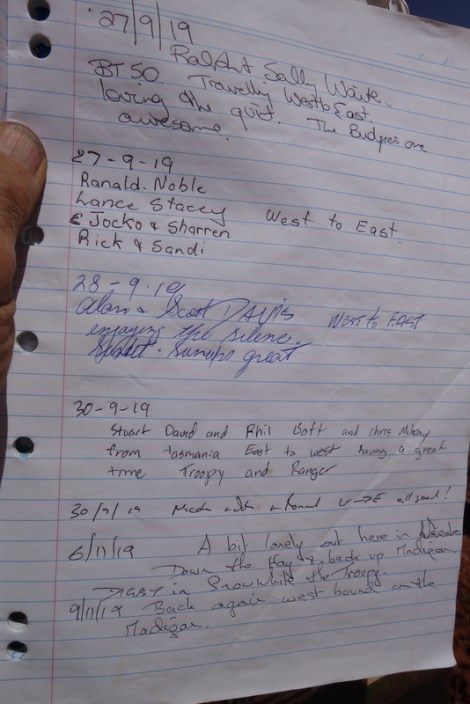 27/9/19
Ralph & Sally Waite.
BT50 Travelling West to East.
loving the quiet. The Budgies are
awesome.
27-9-19
Ranald. Noble
Lance Stacey West to East.
& Jocko & Sharren
Rick & Sandi
28-9-19
Alan & Scott DAVIS West to EAST
enjoying the silence.
Sunset. Sunups great
30-9-19
Stuart David and Phil Bott and Chris
from Tasmania East to west having a great
time Troopy and Ranger
30/9/19 W→E all good!
6/11/19 A bit lonely out here in November
Down the Hay & back up Madigan
DIGBY in Snowwhite the Troopy.
9/11/19 Back again west bound on the
Madigan.